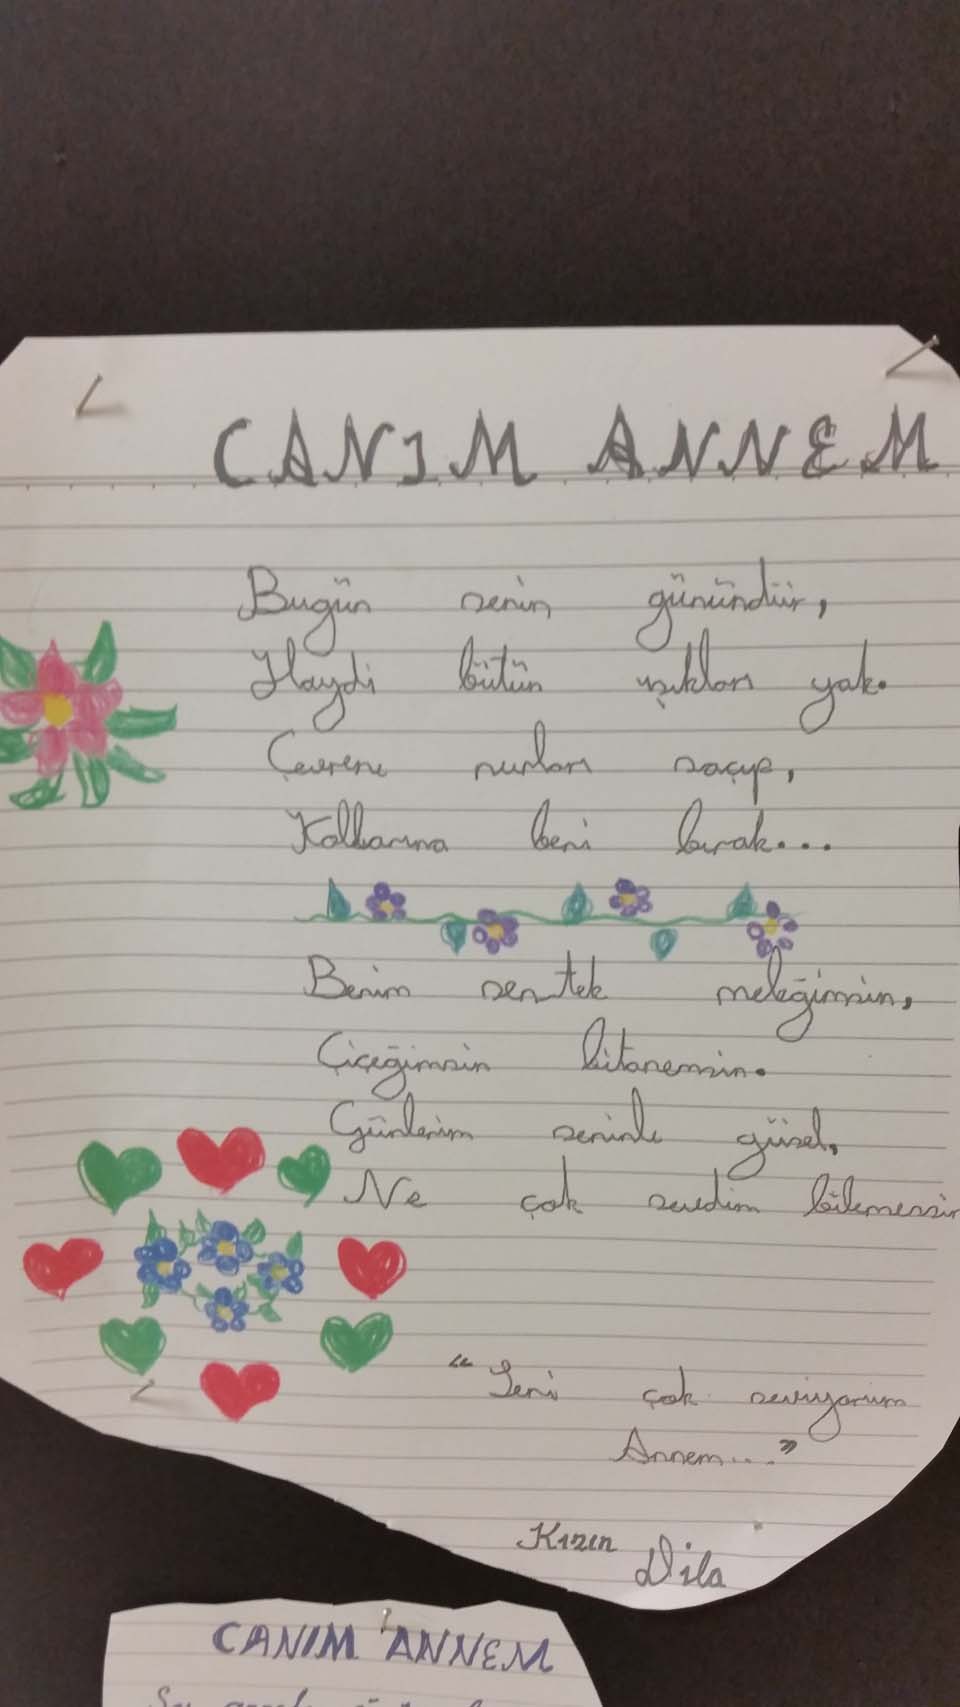 CANIM ANNEM
Bugün senin günündür,
Haydi bütün ışıkları yak.
Çevrene nurları saçıp,
Kollarına beni bırak...
Benim sen tek meleğimsin,
Çiçeğimsin bitanemsin.
Günlerim seninle güzel,
Ne çok sevdim bilemezsin
"Seni çok seviyorum
Annem...."
Kızın Dila
CANIM ANNEM